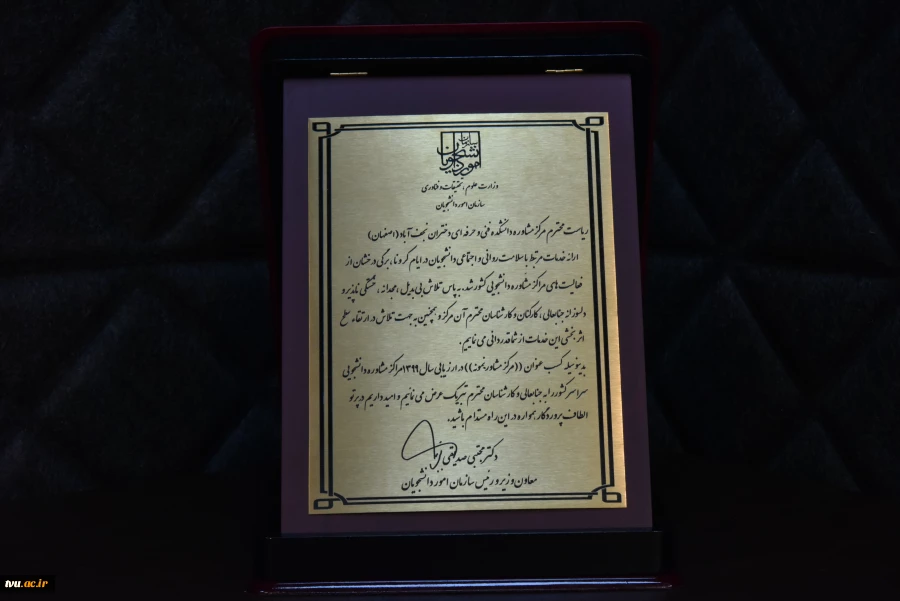 سازمان
امور دانشجویان
وزارت علوم، تحقیقات و فناوری
سازمان امور دانشجویان
ریاست محترم مرکز مشاوره دانشکده فنی و حرفه ای دختران نجف آباد (اصفهان)
ارائه خدمات مرتبط با سلامت روانی و اجتماعی دانشجویان در ایام کرونا، برگی درخشان از
فعالیت های مراکز مشاوره دانشجویی کشور شد. به پاس تلاش بی بدیل، مجدانه، خستگی ناپذیر و
دلسوزانه جنابعالی، کارکنان و کارشناسان محترم آن مرکز و همچنین به جهت تلاش در ارتقاء سطح
اثربخشی این خدمات از شما قدردانی می نماییم.
بدینوسیله کسب عنوان ((مرکز مشاوره نمونه)) در ارزیابی سال ۱۳۹۹ مراکز مشاوره دانشجویی
سراسر کشور را به جنابعالی و کارشناسان محترم تبریک عرض می نمایم و امید داریم در پرتو
الطاف پروردگار همواره در این راه مستدام باشید.
دکتر مجتبی صدیقی
معاون وزیر و رئیس سازمان امور دانشجویان
tvu.ac.ir